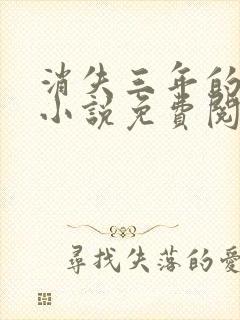 消失三年的
小説免費閱
尋找失落的愛